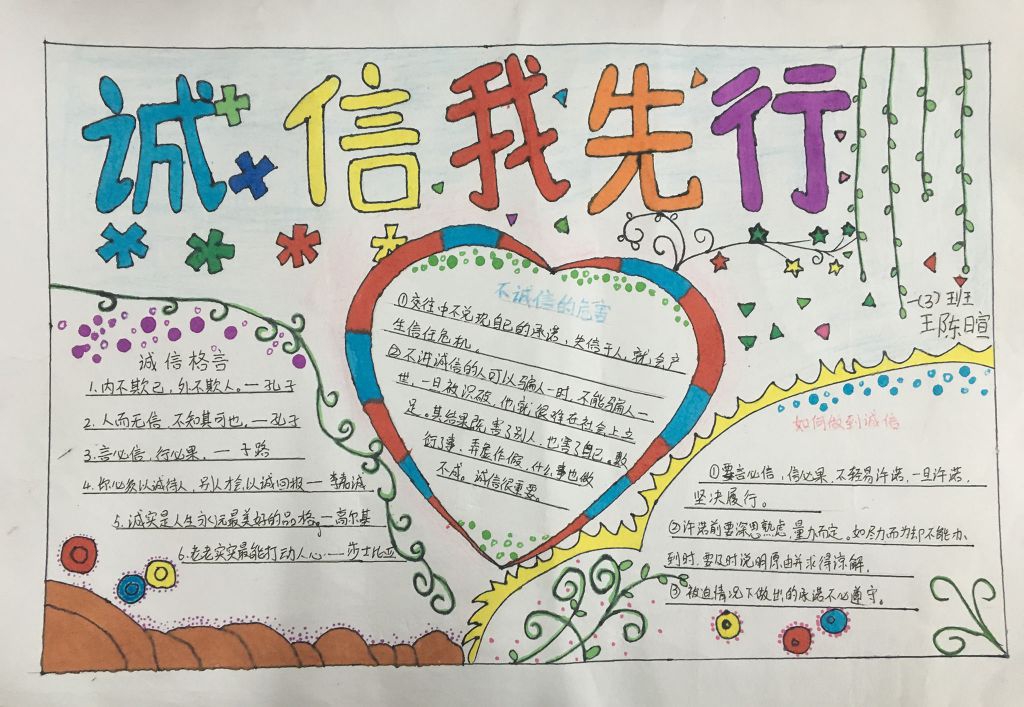 诚信我先行
一(3)班
王陈日宣
诚信格言
1.内不欺己，外不欺人。—孔子
2.人而无信，不知其可也。—孔子
3.言必信，行必果，—子路
4.你必须以诚待人，别人才会以诚回报—李嘉诚
5.诚实是人生永远最美好的品格。—高尔基
6.老老实实最能打动人心——莎士比亚
不诚信的危害
①交往中不兑现自己的承诺，失信于人，就会产
生信任危机。
②不讲诚信的人可以骗人一时，不能骗人一
世，一旦被识破，他就很难在社会上立
足。其结果既害了别人，也害了自己。敷
衍了事，弄虚作假，什么事也做
不成。诚信很重要。
如何做到诚信
①要言必信，信必果，不轻易许诺，一旦许诺，
坚决履行。
②许诺前要深思熟虑，量力而定。如尽力而为却不能办
到时，要及时说明原由并求得谅解，
③被迫情况下做出的承诺不必遵守。